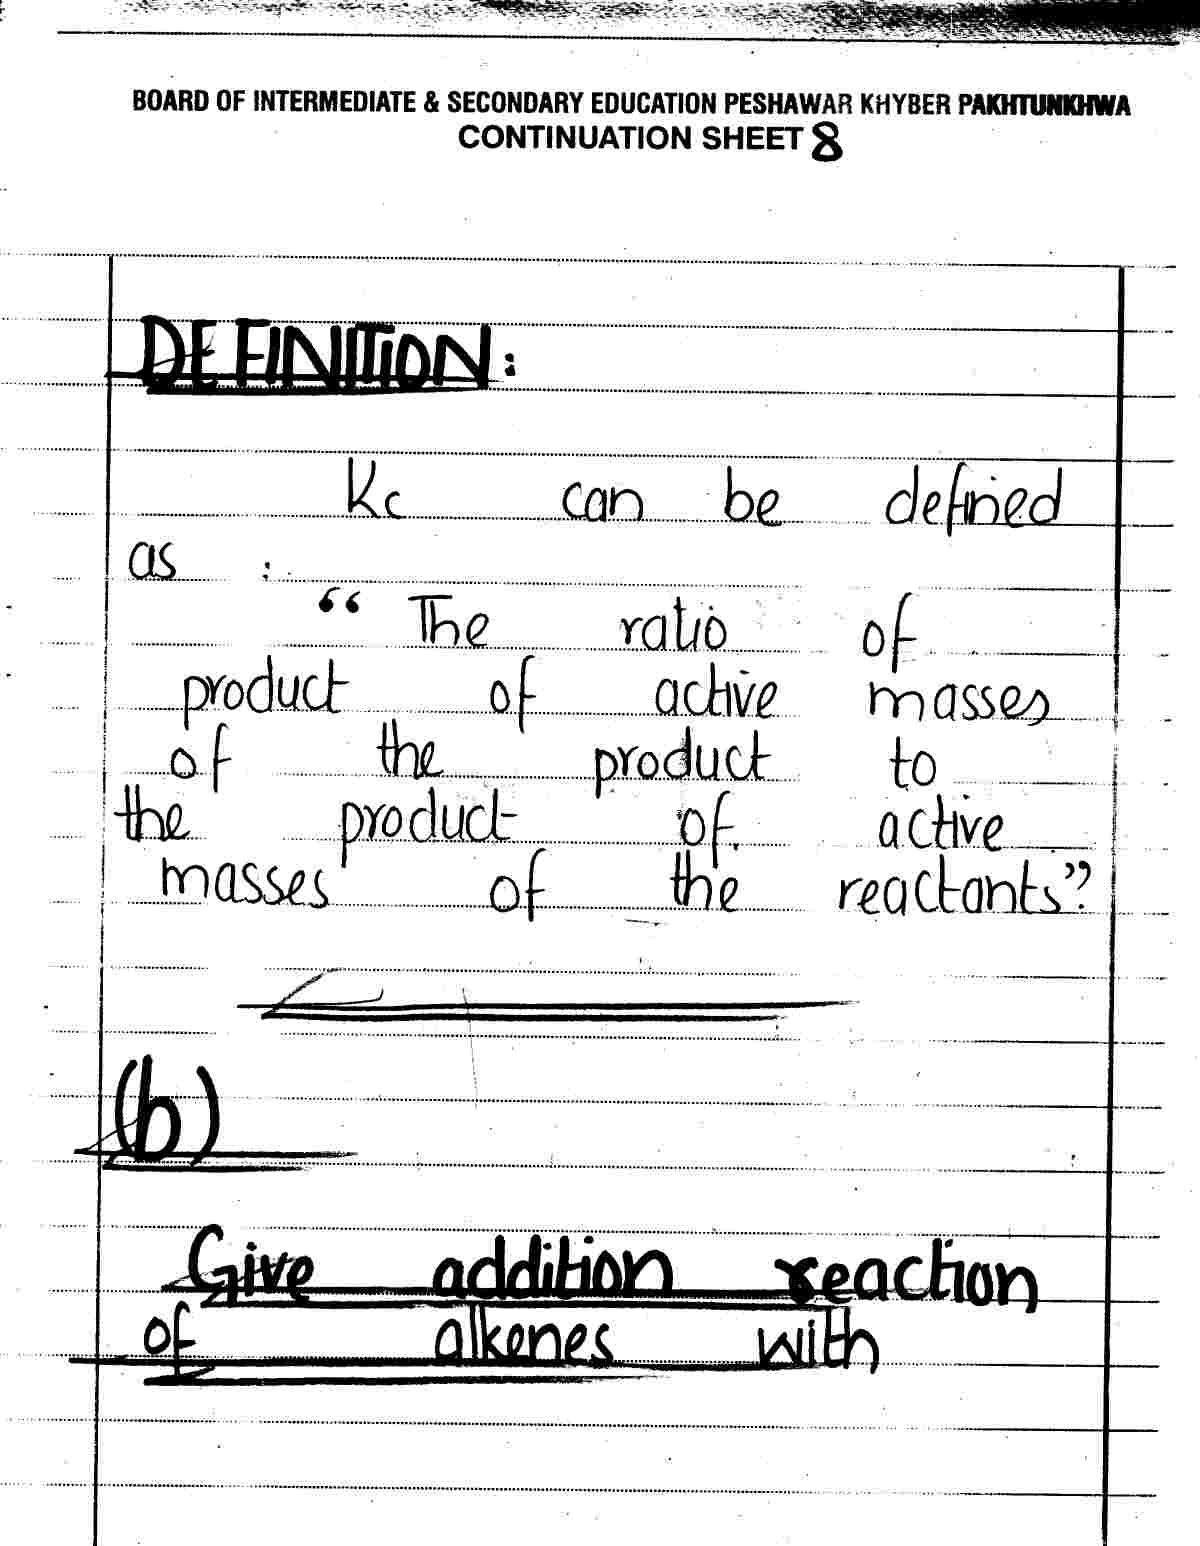 BOARD OF INTERMEDIATE & SECONDARY EDUCATION PESHAWAR KHYBER PAKHTUNKHWA
CONTINUATION SHEET 8
DEFINITION:
Kc can be defined
as :
“ The ratio of
product of active masses
of the product to
the product of active
masses of the reactants”
(b)
Give addition reaction
of alkenes with